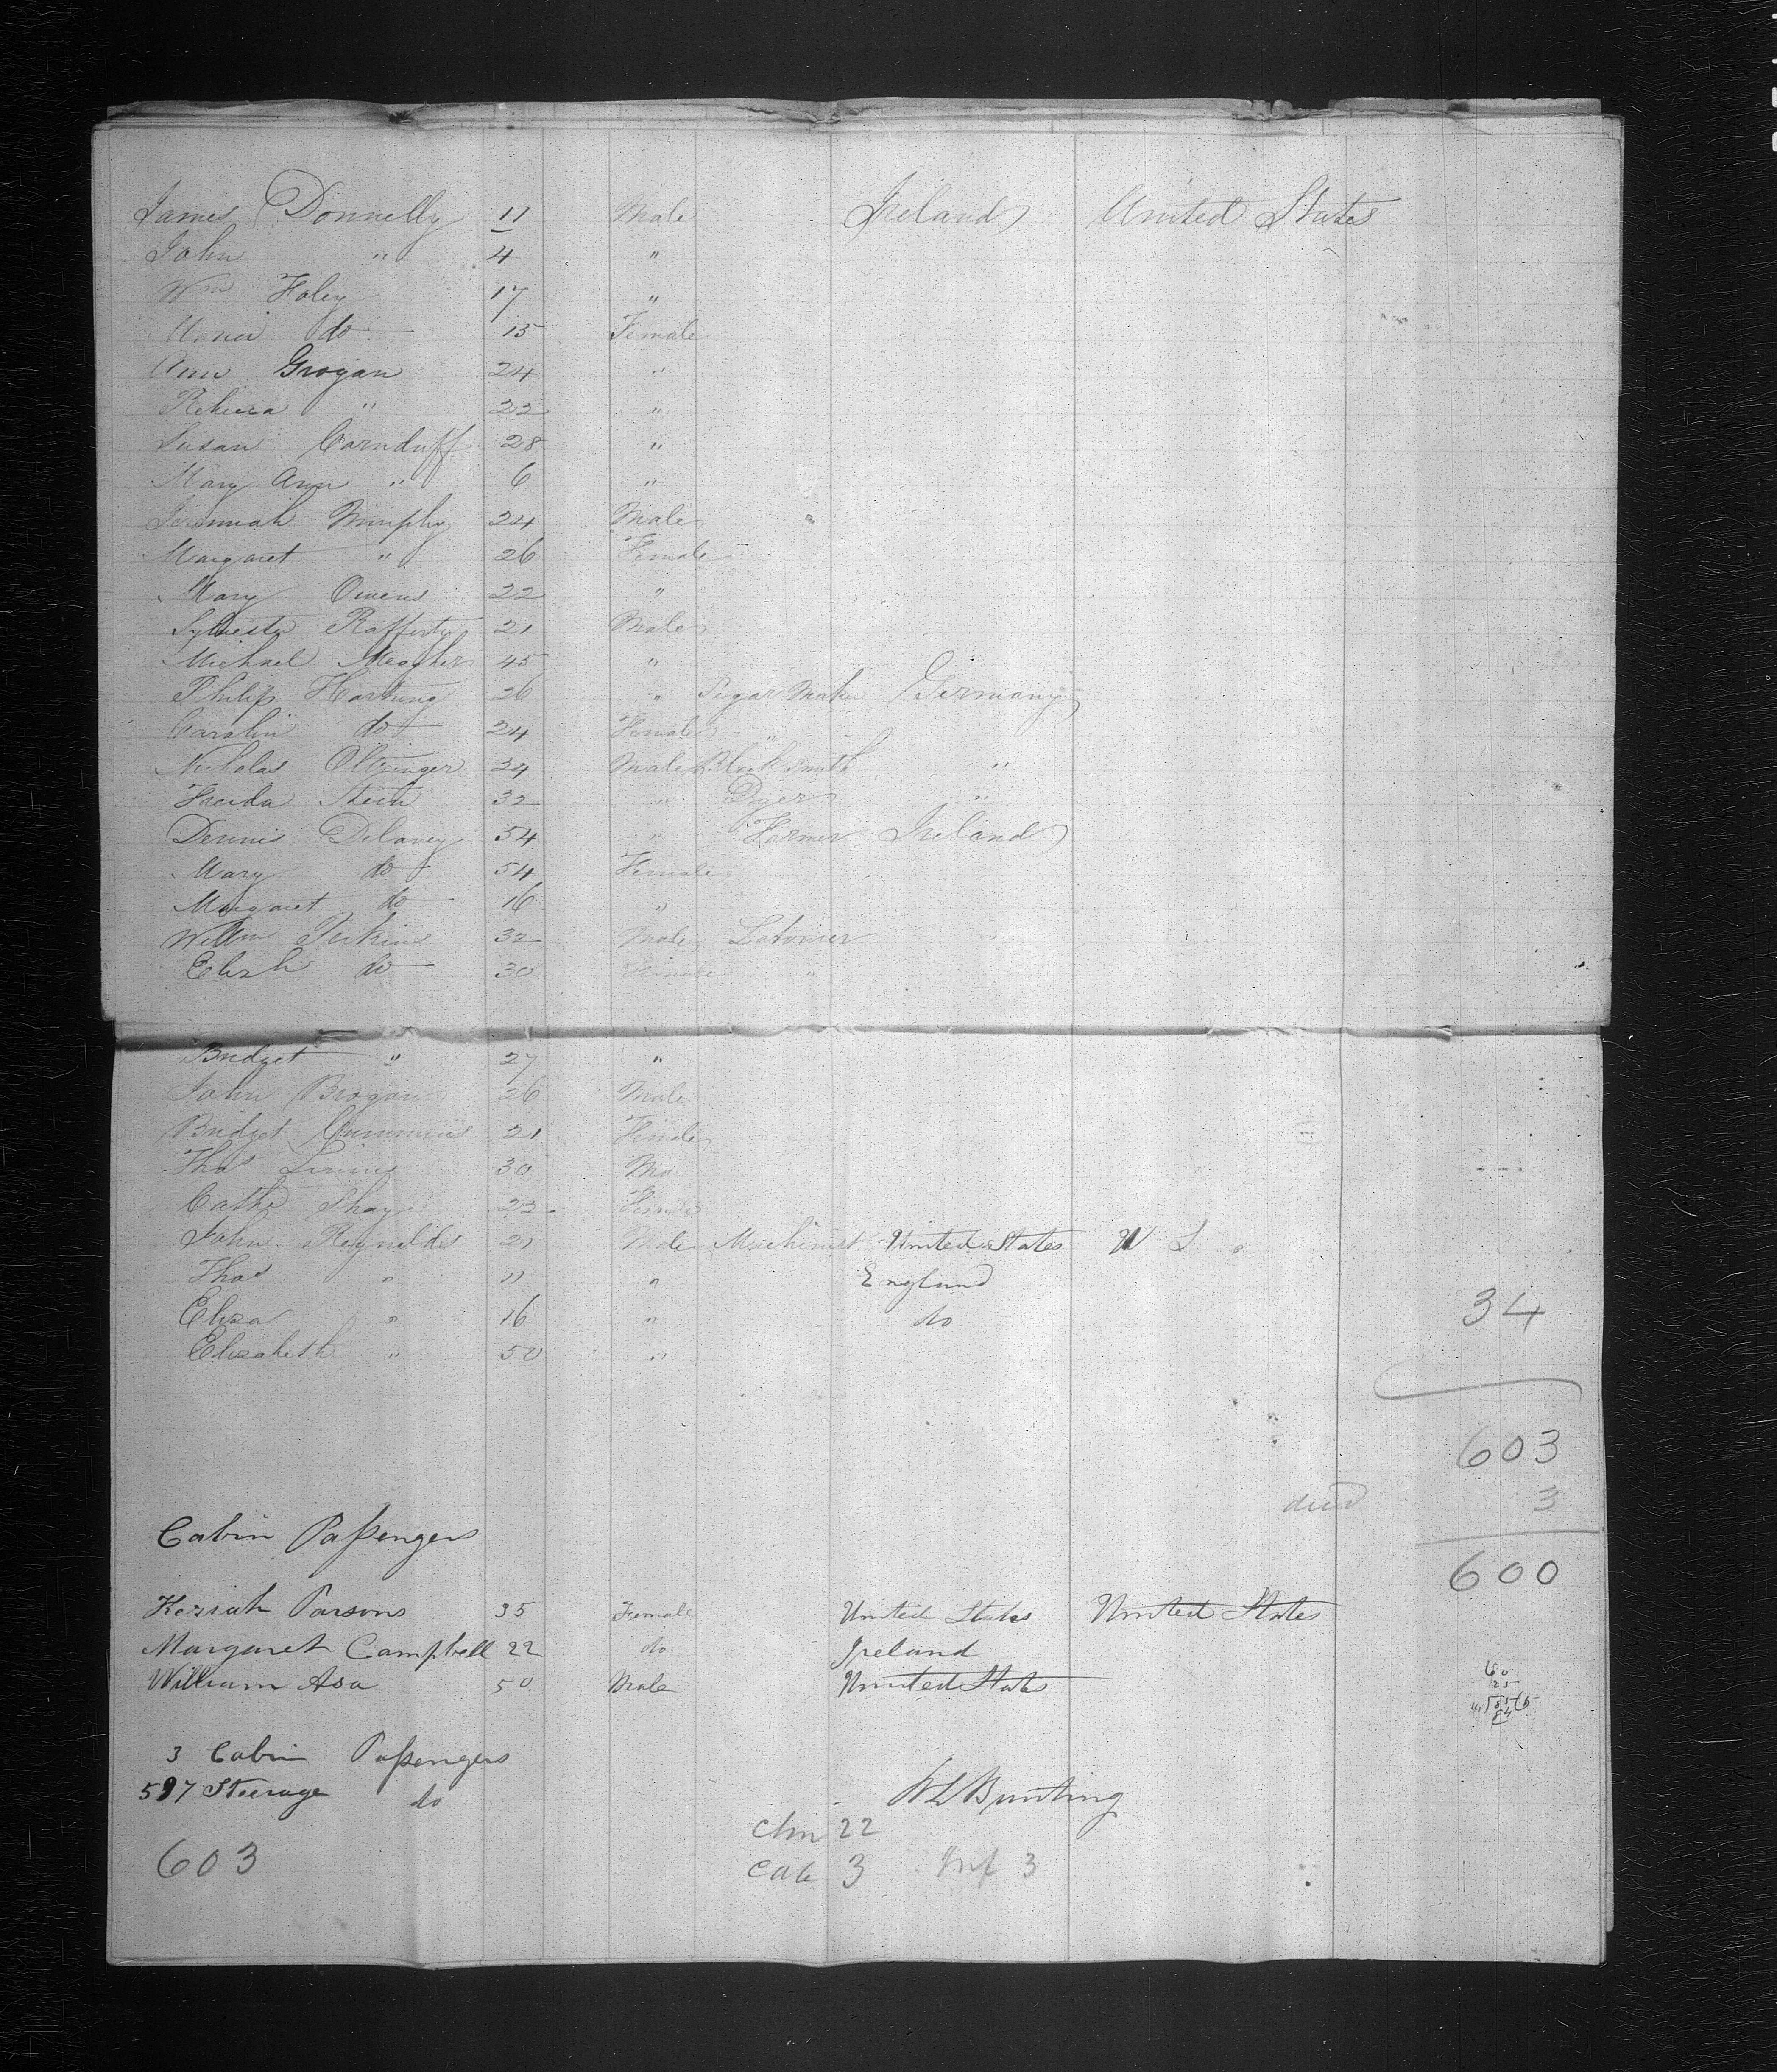 James Donnelly 11 Male Ireland United States
John " 4 "
Wm Foley 17 "
Maria do 15 Female
Ann Grogan 24 "
Rebecca " 22 "
Susan Carnduff 28 "
Mary Ann " 6 "
Jeremiah Murphy 24 Male
Margaret " 26 Female
Mary Owens 22 "
Sylvester Rafferty 21 Male
Michael Meagher 45 "
Philip Hartung 26 " Segar Maker Germany
Carolin do 24 Female "
Nicholas 34 Male Blacksmith "
Freida Stein 32 " Dyer "
Dennis Delaney 54 " Farmer Ireland
Mary do 54 Female
Margaret do 16 "
Willm Jenkins 32 Male Labourer
Elizh do 30 Female "
Bridget " 27 "
John Brogan 26 Male
Bridget Cummins 21 Female
Thos 30 Ma
Cathe Shay 22 Female
John Reynolds 21 Male Machinist United States U S
Thos " 11 " England
Eliza " 16 " do
34
Elizabeth " 50 "
603
died 3
Cabin Passengers
600
Keziah Parsons 35 Female United States United States
Margaret Campbell 22 do Ireland
William Asa 50 Male United States
60
25
14 85 6
84
3 Cabin Passengers
597 Steerage do
W L Bunting
Chn 22
603
Cab 3 Inf 3